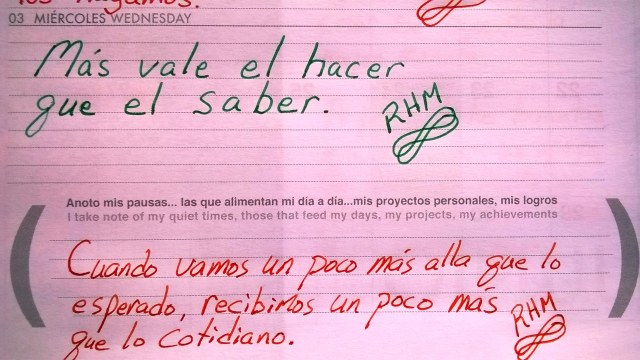 los hagamos.
03 MIÉRCOLES WEDNESDAY
Más vale el hacer
que el saber.
RHM
Anoto mis pausas... las que alimentan mi día a día...mis proyectos personales, mis logros
I take note of my quiet times, those that feed my days, my projects, my achievements
Cuando vamos un poco más alla que lo
esperado, recibimos un poco más
que lo cotidiano.
RHM